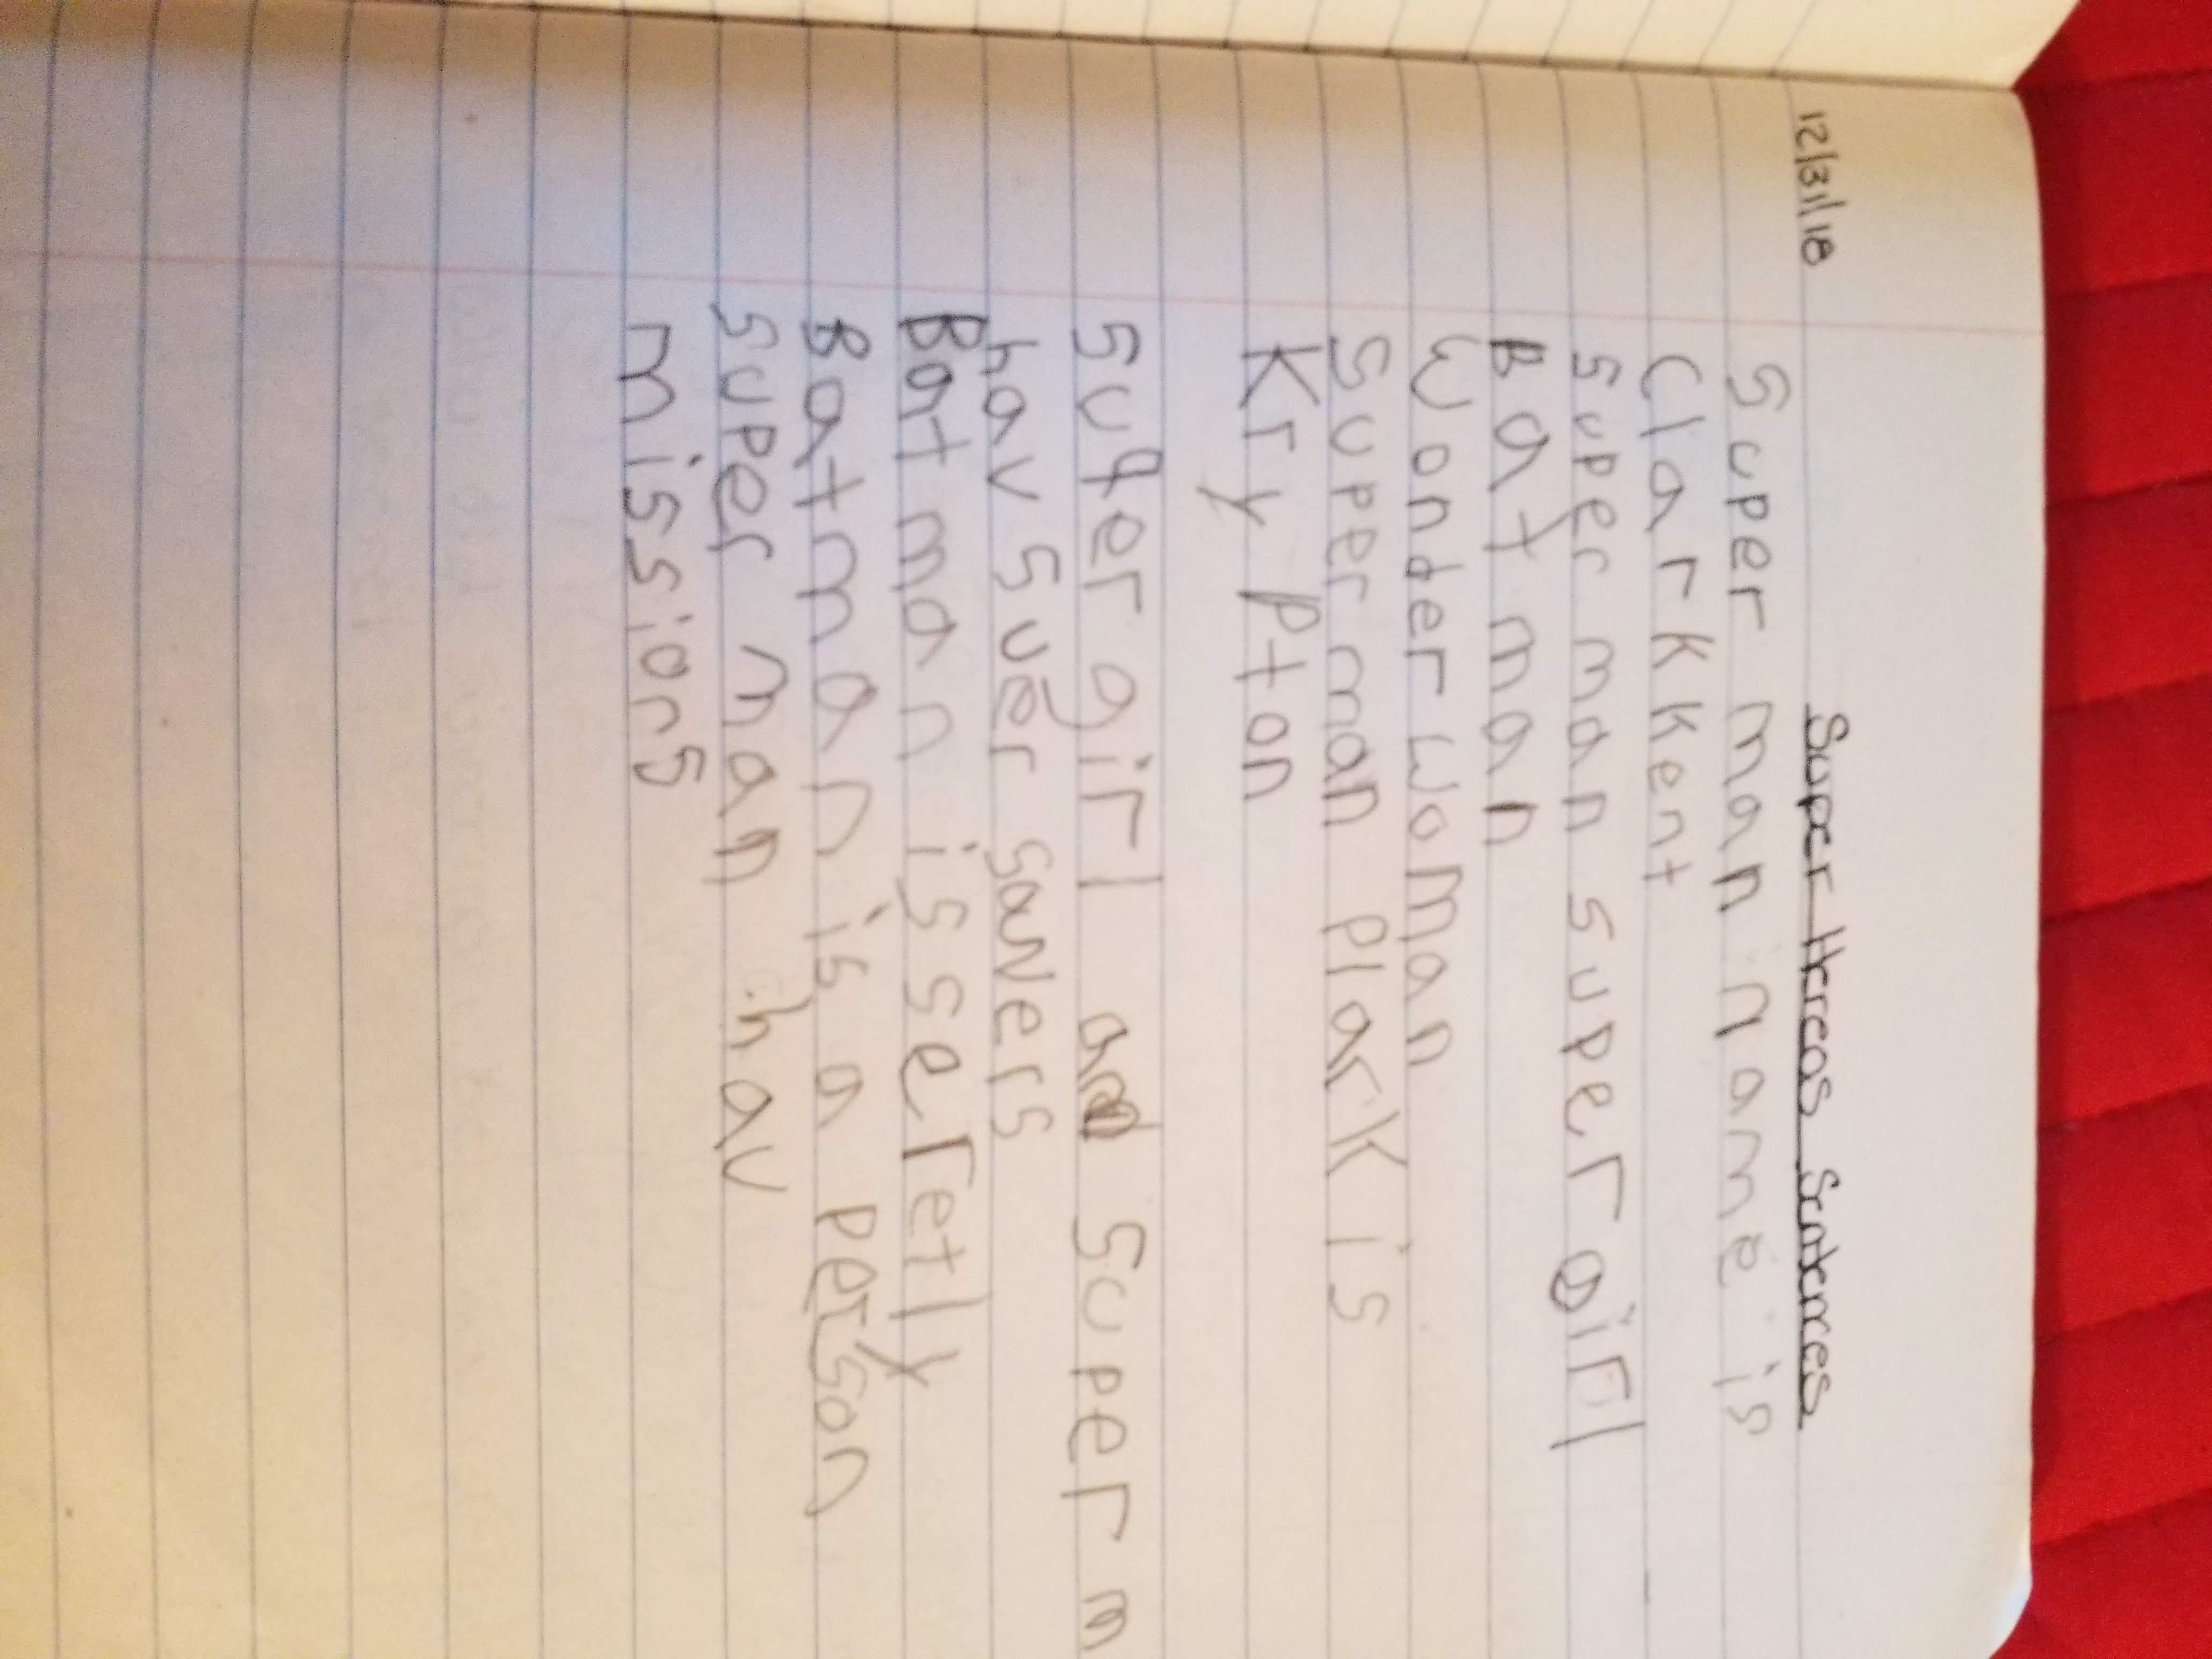 12/31/18
Super Heroes Sentences
Super man name is
Clark Kent
super man super girl
Bat man
Wonder Woman
Super man Plark is
Kry Pton
Super girl and Super m
hav suer savers
Bat man is seretly
Batman is a person
super man hav
missions